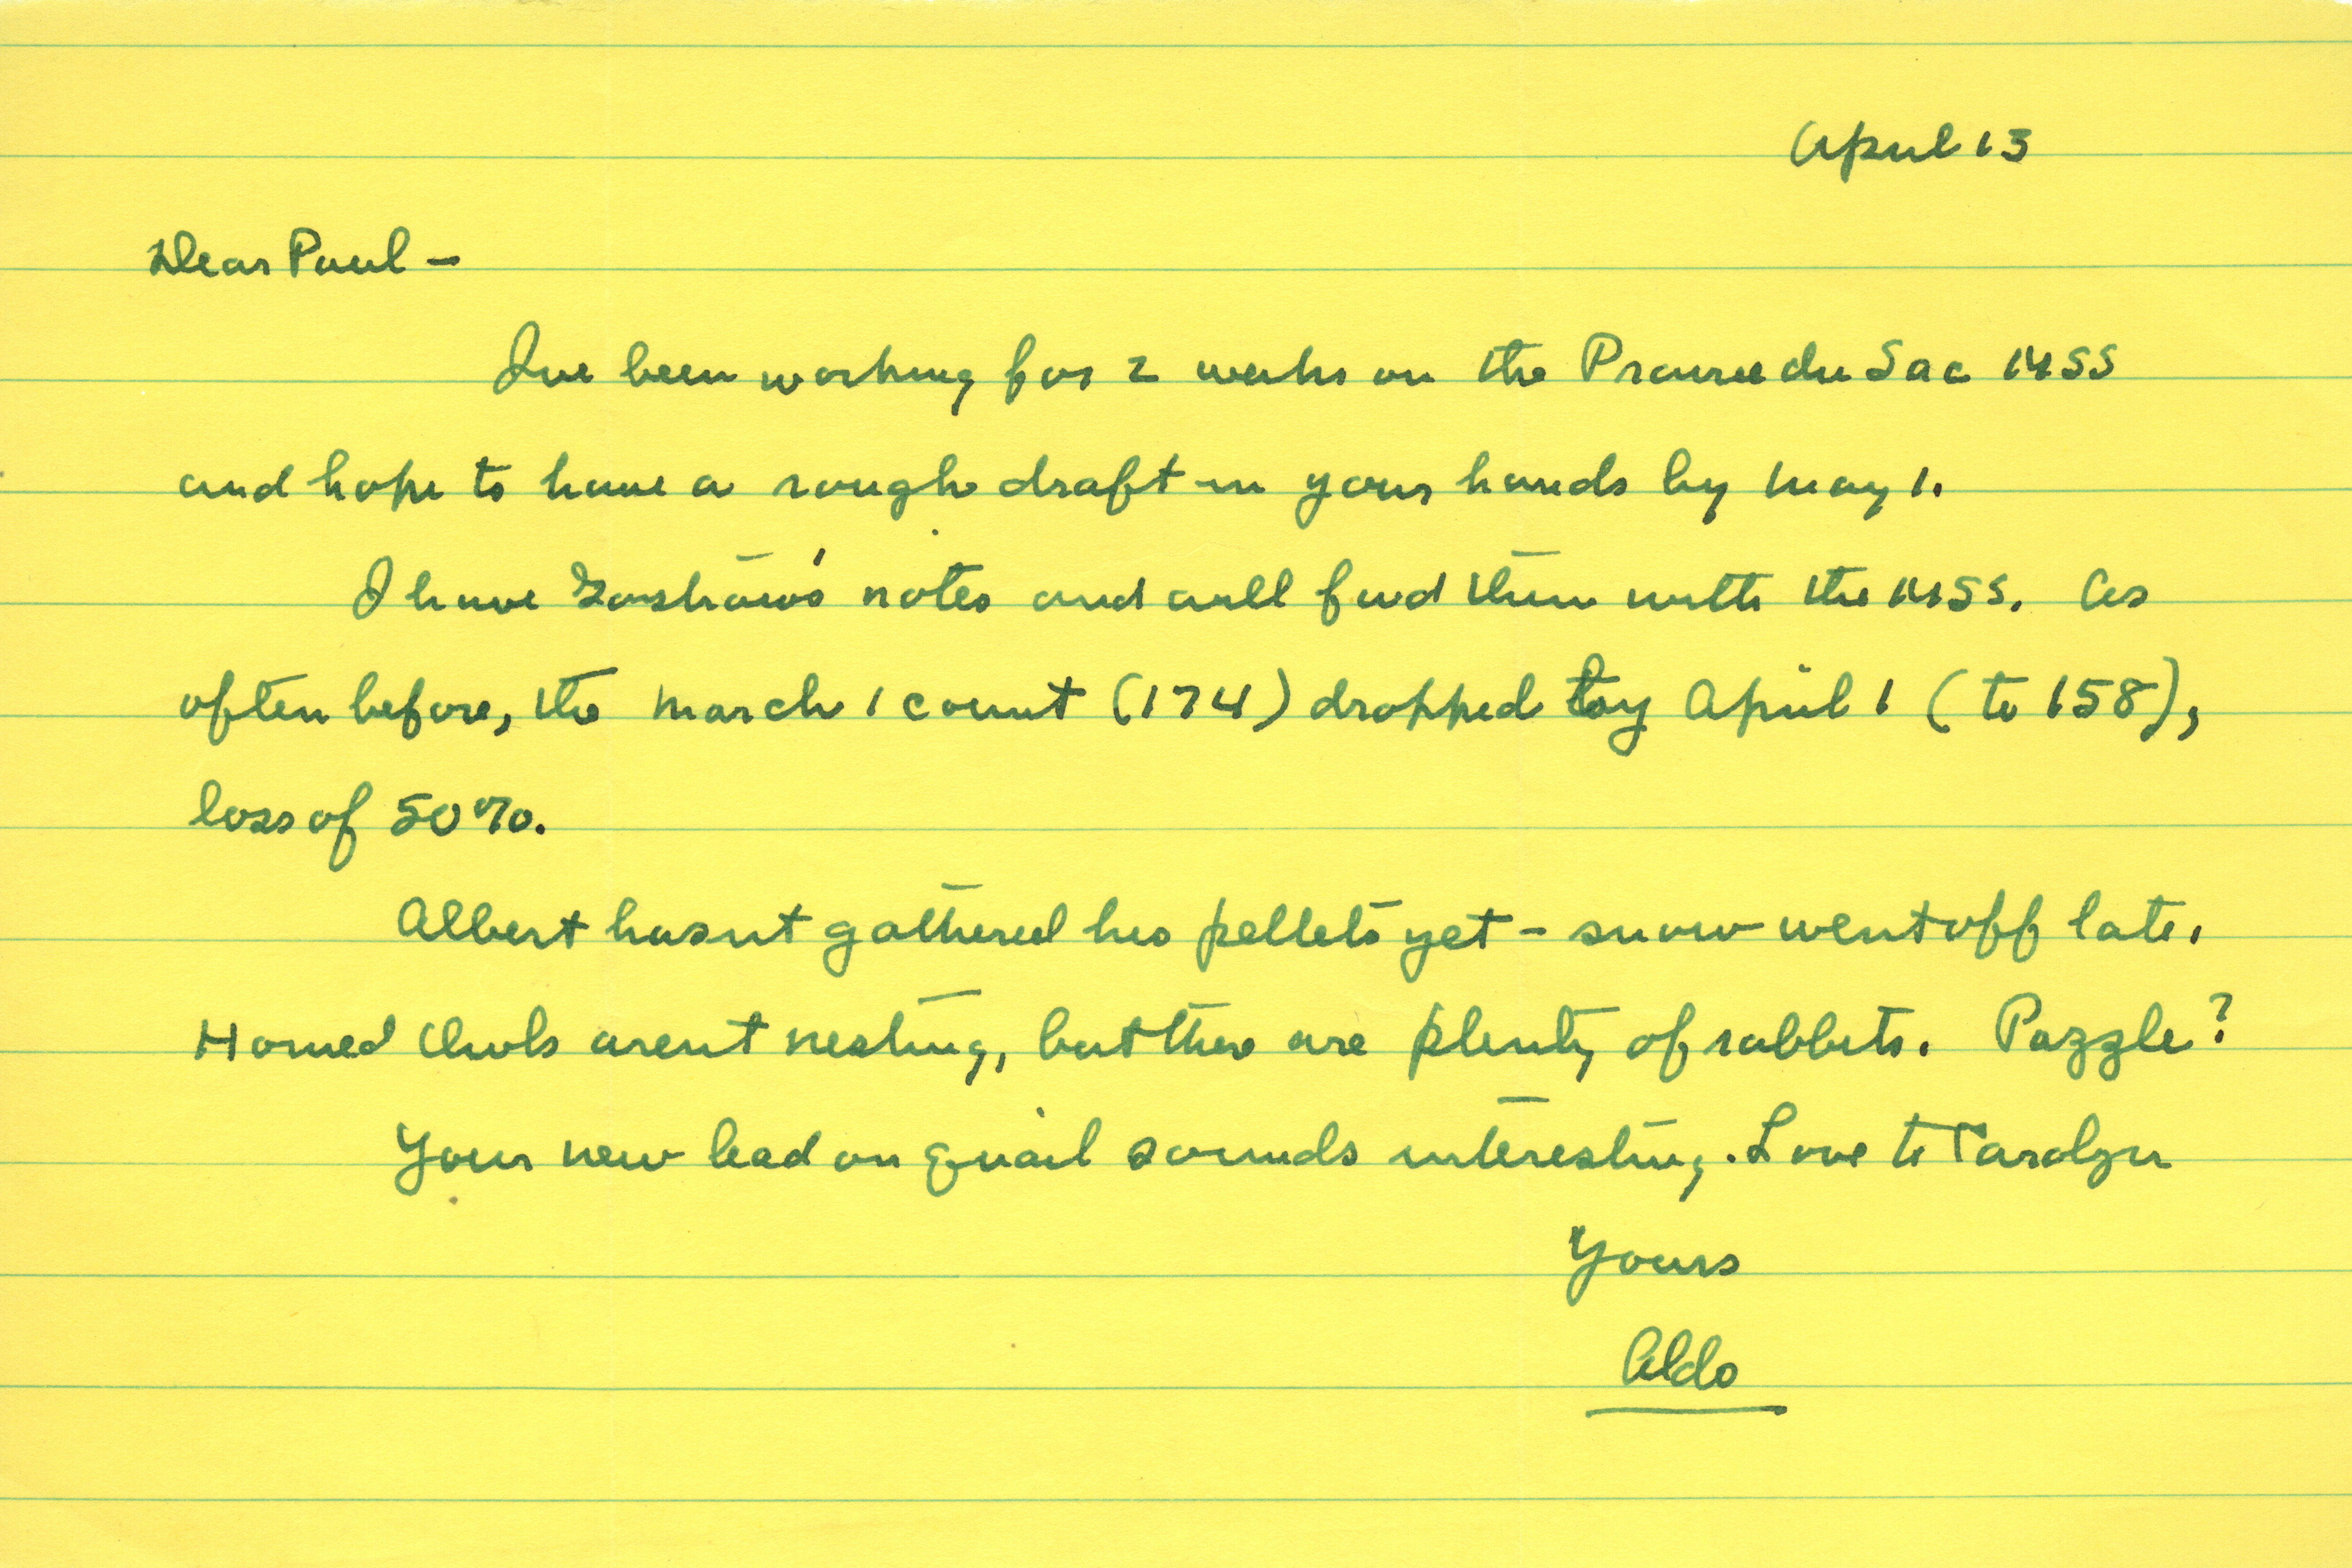 April 13
Dear Paul –
Ive been working for 2 weeks on the Prairie du Sac MSS
and hope to have a rough draft in your hands by May 1.
I have notes and will find them with the MSS. As
often before, the March 1 count (174) dropped by April 1 (to 158),
loss of 50%.
Albert hasnt gathered his pellets yet – snow went off late.
Horned Owls arent nesting, but there are plenty of rabbits. Puzzle?
Your new lead on quail sounds interesting. Love to Carolyn
Yours
Aldo